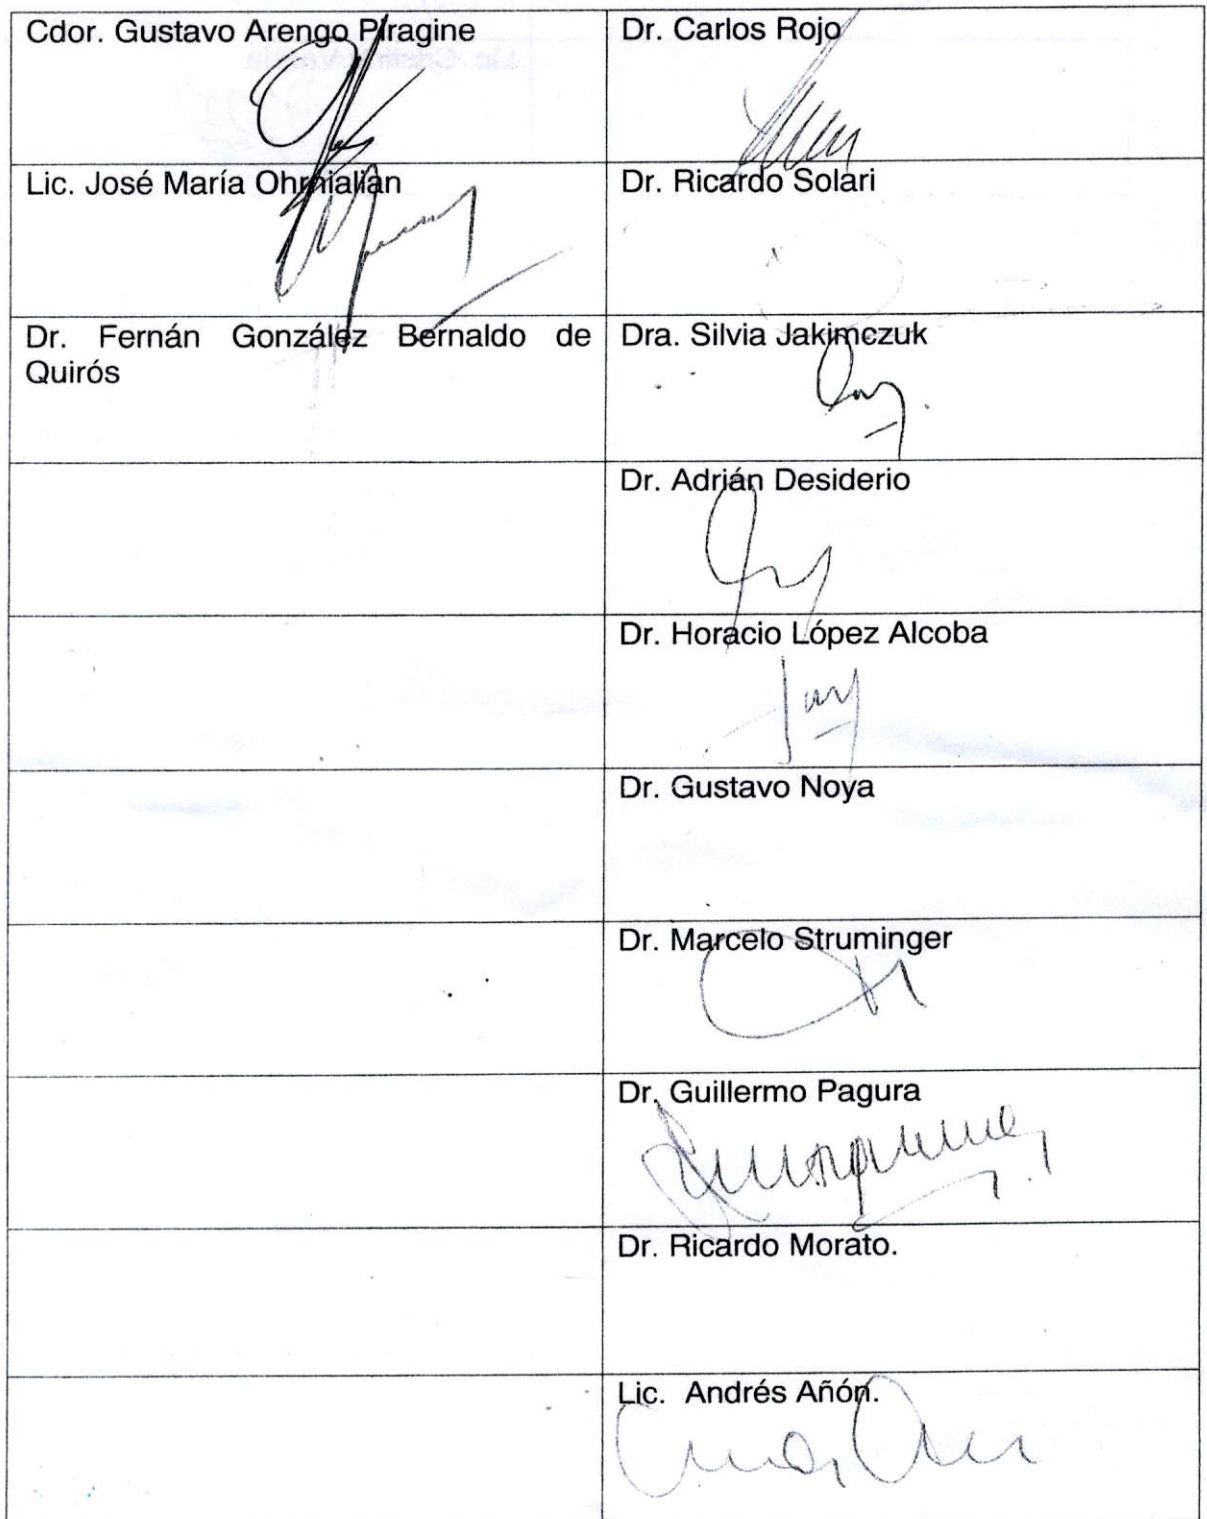 Cdor. Gustavo Arengo Piragine
Dr. Carlos Rojo
Lic. José María Ohrnialian
Dr. Ricardo Solari
Dr. Fernán González Bernaldo de
Quirós
Dra. Silvia Jakimczuk
Dr. Adrián Desiderio
Dr. Horacio López Alcoba
Dr. Gustavo Noya
Dr. Marcelo Struminger
Dr. Guillermo Pagura
Dr. Ricardo Morato.
Lic. Andrés Añón.